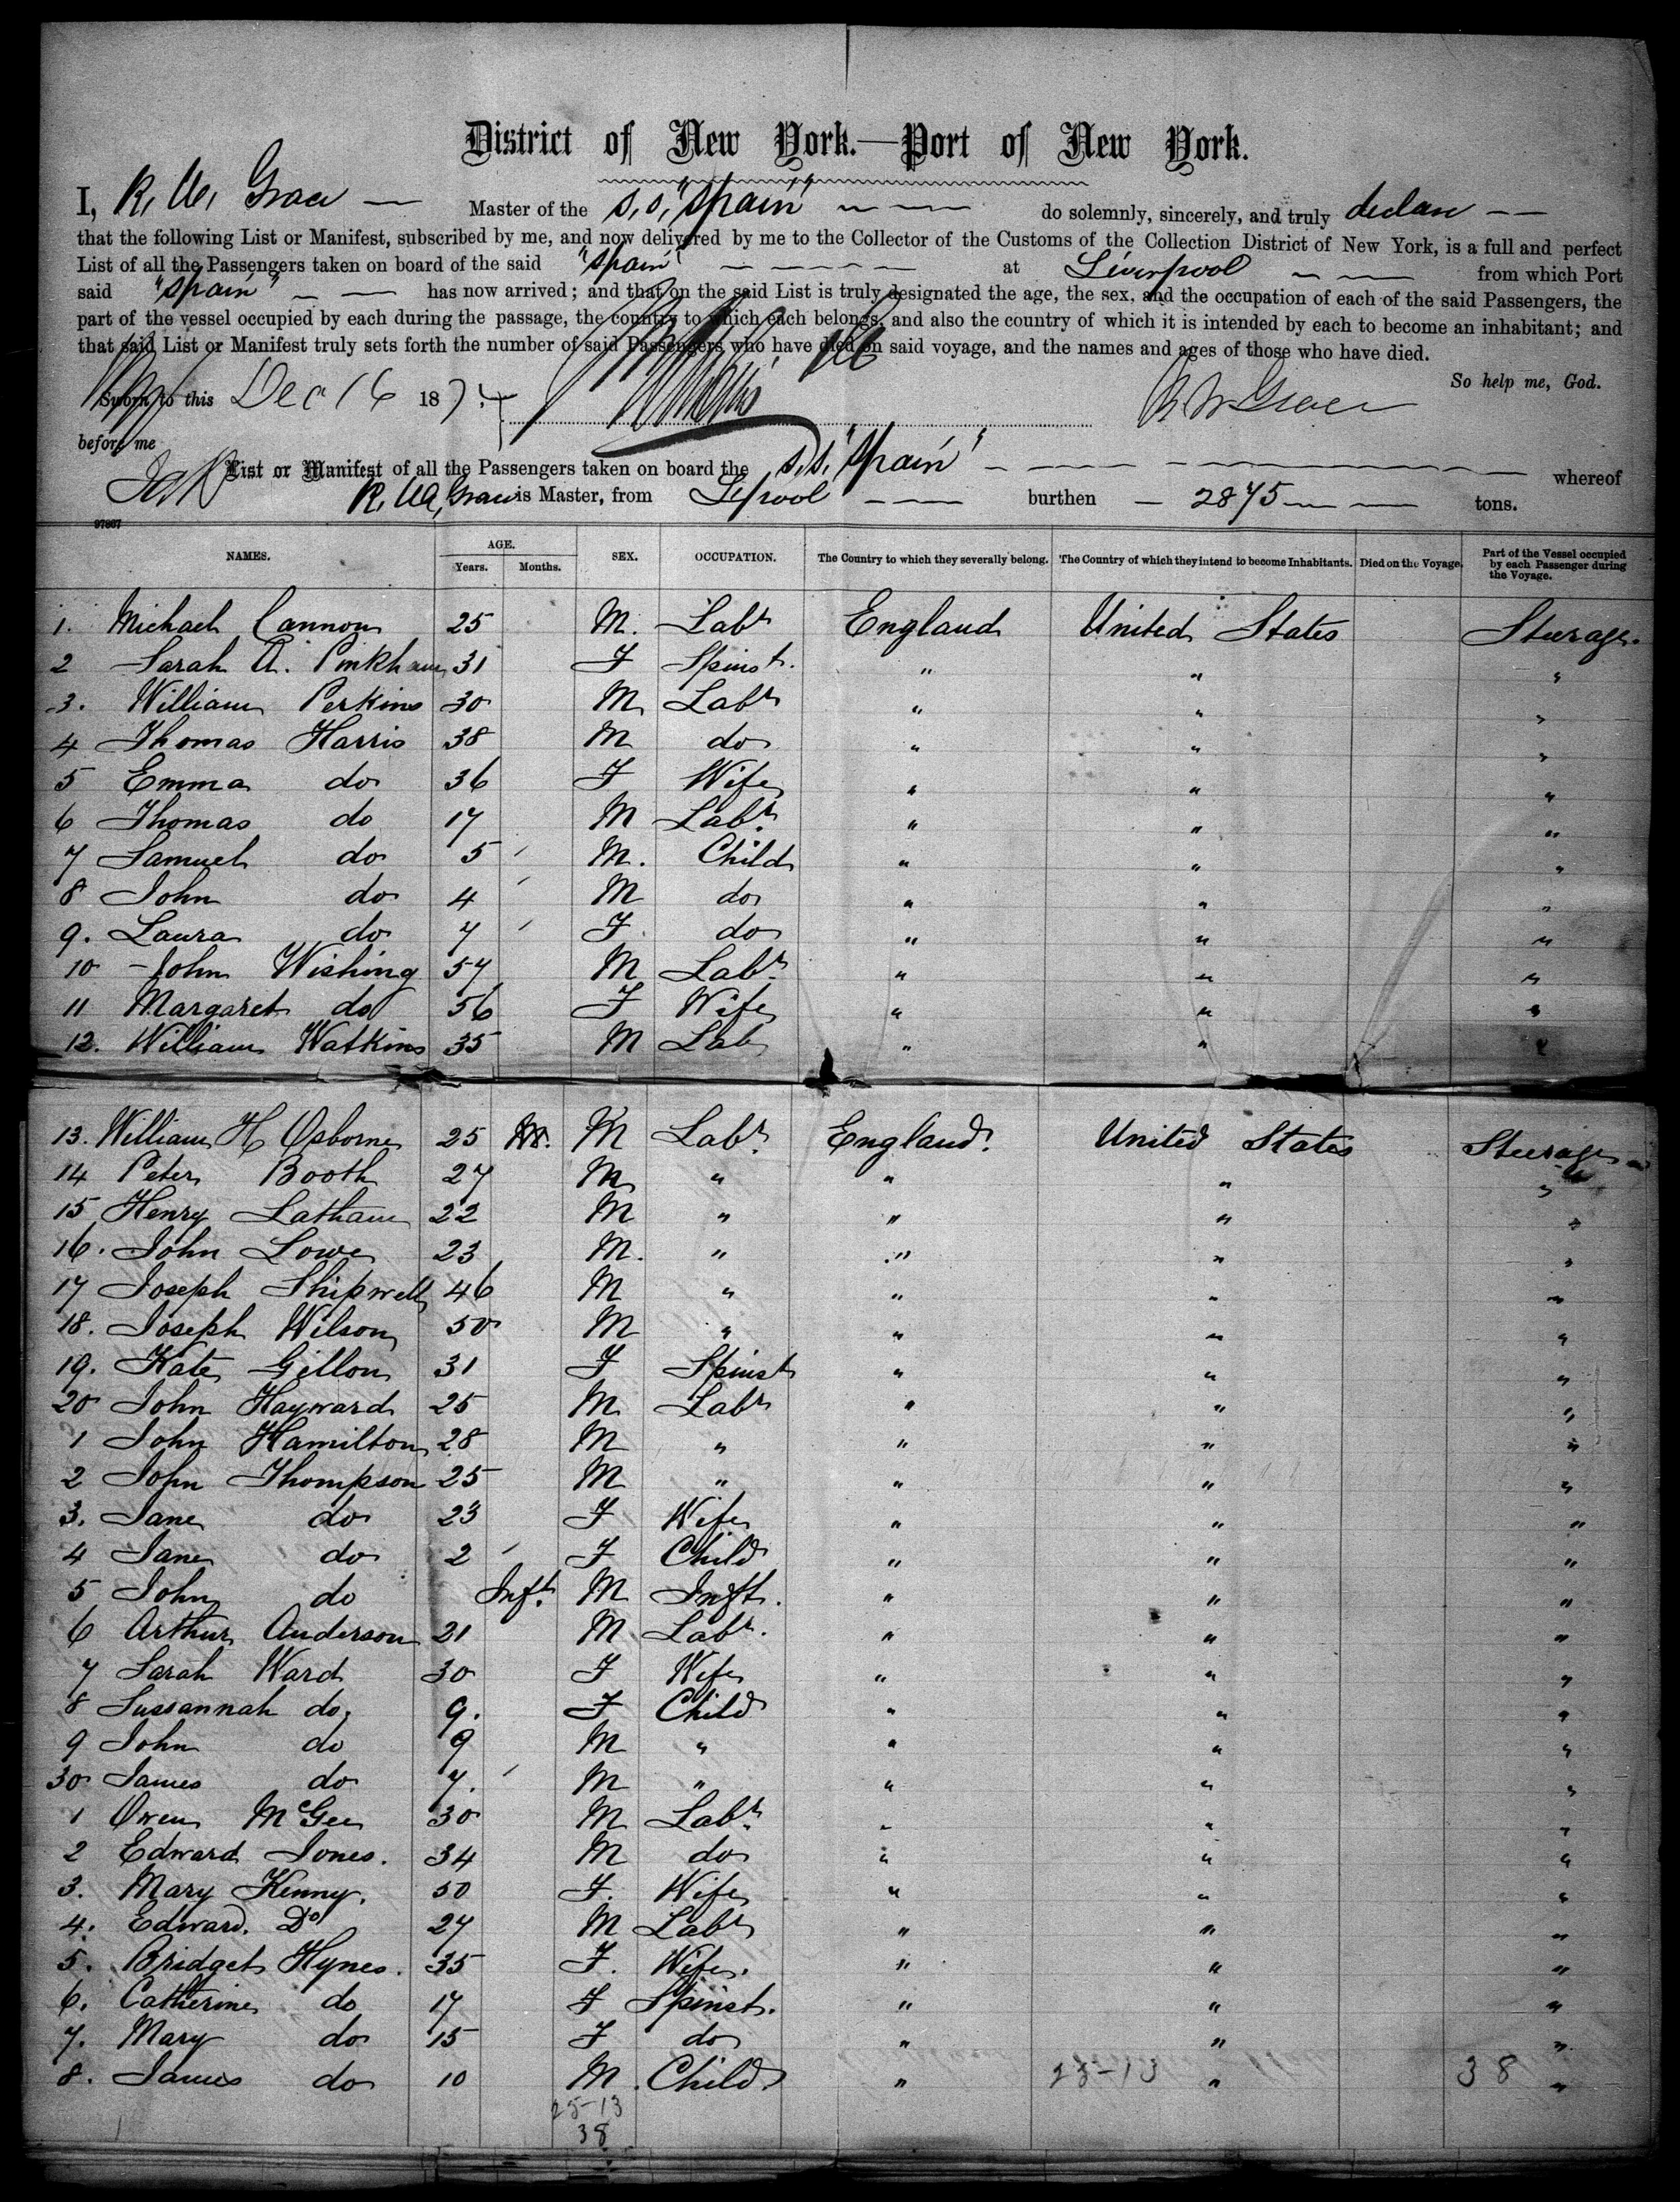 District of New York.—Port of New York.
I, R. W. Grace — Master of the S.S. "Spain" — — do solemnly, sincerely, and truly declare — —
that the following List or Manifest, subscribed by me, and now delivered by me to the Collector of the Customs of the Collection District of New York, is a full and perfect
List of all the Passengers taken on board of the said "Spain" — — — — — at Liverpool — — from which Port
said "Spain" — — has now arrived; and that on the said List is truly designated the age, the sex, and the occupation of each of the said Passengers, the
part of the vessel occupied by each during the passage, the country to which each belongs, and also the country of which it is intended by each to become an inhabitant; and
that said List or Manifest truly sets forth the number of said Passengers who have died on said voyage, and the names and ages of those who have died.
So help me, God.
Sworn to this Dec 16 187
R W Grace
before me
List or Manifest of all the Passengers taken on board the S.S. "Spain" — — — — whereof
R. W. Grace is Master, from Lpool — — burthen — 2875 — — tons.
97867
NAMES. AGE. Years. Months. SEX. OCCUPATION. The Country to which they severally belong. The Country of which they intend to become Inhabitants. Died on the Voyage. Part of the Vessel occupied by each Passenger during the Voyage.
1. Michael Cannon 25 M. Labr England United States Steerage.
2 Sarah A. Pinkham 31 F Spinst. " " "
3. William Perkins 30 M Labr " " "
4 Thomas Harris 38 M do " " "
5 Emma do 36 F Wife " " "
6 Thomas do 17 M Labr " " "
7 Samuel do 5 M. Child " " "
8 John do 4 M do " " "
9. Laura do 7 F do " " "
10 John Wishing 57 M Labr " " "
11 Margaret do 56 F Wife " " "
12. William Watkins 35 M Lab " " "
13. William H Osborne 25 M Labr England. United States Steerage
14 Peter Booth 27 M " " " "
15 Henry Latham 22 M " " " "
16. John Lowe 23 M. " " " "
17 Joseph Shipwell 46 M " " " "
18. Joseph Wilson 50 M " " " "
19. Kate Gillon 31 F Spinst " " "
20 John Hayward 25 M Labr " " "
1 John Hamilton 28 M " " " "
2 John Thompson 25 M " " " "
3. Jane do 23 F Wife " " "
4 Jane do 2 F Child " " "
5 John do Inft. M Inft. " " "
6 Arthur Anderson 21 M Labr. " " "
7 Sarah Ward 30 F Wife " " "
8 Sussannah do 9. F Child " " "
9 John do 9 M " " " "
30 James do 7. M " " " "
1 Owen McGee 30 M Labr " " "
2 Edward Jones. 34 M do " " "
3. Mary Kenny. 50 F. Wife " " "
4. Edward. Do 27 M Labr " " "
5. Bridget Hynes. 35 F. Wife. " " "
6. Catherine do 17 F Spinst. " " "
7. Mary do 15 F do " " "
8. James do 10 M. Child " 25-13 " 38 "
25-13
38